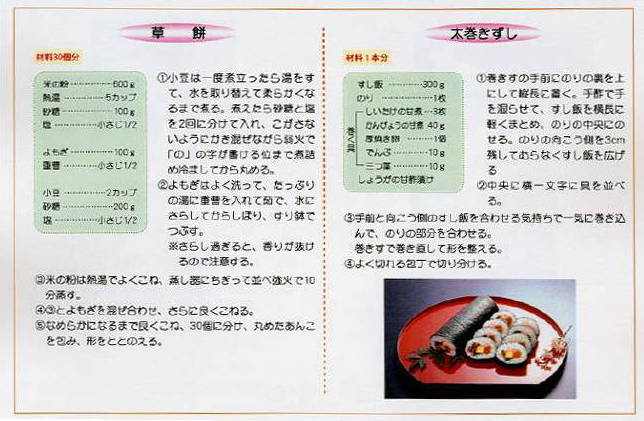 草餅
材料30個分
米の粉 600g
熱湯 5カップ
砂糖 100g
塩 小さじ1/2
よもぎ 100g
重曹 小さじ1/2
小豆 2カップ
砂糖 200g
塩 小さじ1/2
①小豆は一度煮立ったら湯をす
て、水を取り替えて柔らかくな
るまで煮る。煮えたら砂糖と塩
を2回に分けて入れ、こがさな
いようにかき混ぜながら弱火で
「の」の字が書ける位まで煮詰
め冷ましてから丸める。
②よもぎはよく洗って、たっぷり
の湯に重曹を入れて茹で、水に
さらしてからしぼり、すり鉢で
つぶす。
※さらし過ぎると、香りが抜け
るので注意する。
③米の粉は熱湯でよくこね、蒸し器にちぎって並べ強火で10
分蒸す。
④③とよもぎを混ぜ合わせ、さらに良くこねる。
⑤なめらかになるまで良くこね、30個に分け、丸めたあんこ
を包み、形をととのえる。
太巻きずし
材料1本分
すし飯 300g
のり 1枚
しいたけの甘煮 3枚
かんぴょうの甘煮 40g
厚焼き卵 1個
でんぶ 10g
三つ葉 10g
しょうがの甘酢漬け
巻く具
①巻きすの手前にのりの裏を上
にして縦長に置く。手酢で手
を湿らせて、すし飯を横長に
軽くまとめ、のりの中央にの
せる。のりの向こう側を3cm
残しておらなくすし飯を広げ
る
②中央に横一文字に具を並べ
る。
③手前と向こう側のすし飯を合わせる気持ちで一気に巻き込
んで、のりの部分を合わせる。
巻きすで巻き直して形を整える。
④よく切れる包丁で切り分ける。